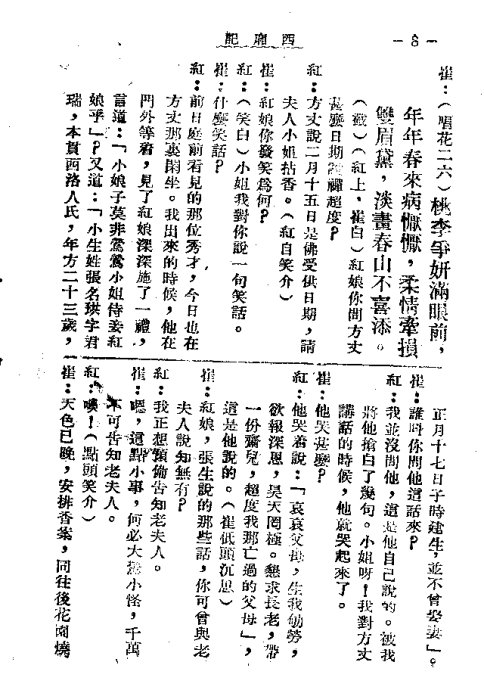 西廂記
— 8 —
崔：（唱花二六）桃李爭妍滿眼前，
年年春來病懨懨，柔情牽損
雙眉黛，淡畫春山不喜添。
（敬）（紅上，崔白）紅娘你問方丈
甚麼日期禪超度？
紅：方丈說二月十五日是佛受供日期，請
夫人小姐拈香。（紅自笑介）
崔：紅娘你發笑爲何？
紅：（笑白）小姐我對你說一句笑話。
崔：什麼笑話？
紅：前日庭前看見的那位秀才，今日也在
方丈那裏閑坐。我出來的時候，他在
門外等着，見了紅娘深深施了一禮，
言道：「小娘子莫非鶯鶯小姐侍妾紅
娘乎」？又道：「小生姓張名珙字君
瑞，本貫西洛人氏，年方二十三歲，
正月十七日子時建生，並不曾娶妻」。
崔：誰叫你問他這話來？
紅：我並沒問他，這是他自己說的。被我
將他搶白了幾句。小姐呀！我對方丈
講話的時候，他就哭起來了。
崔：他哭甚麼？
紅：他哭着說：「哀哀父母，生我劬勞，
欲報深恩，昊天罔極。懇求長老，帶
一份齋兒，超度我那亡過的父母」，
這是他說的。（崔低頭沉思）
崔：紅娘，張生說的那些話，你可曾與老
夫人說知無有？
紅：我正想預備告知老夫人。
崔：嗯，這點小事，何必大驚小怪，千萬
不可告知老夫人。
紅：噢！（點頭笑介）
崔：天色已晚，安排香案，同往後花園燒